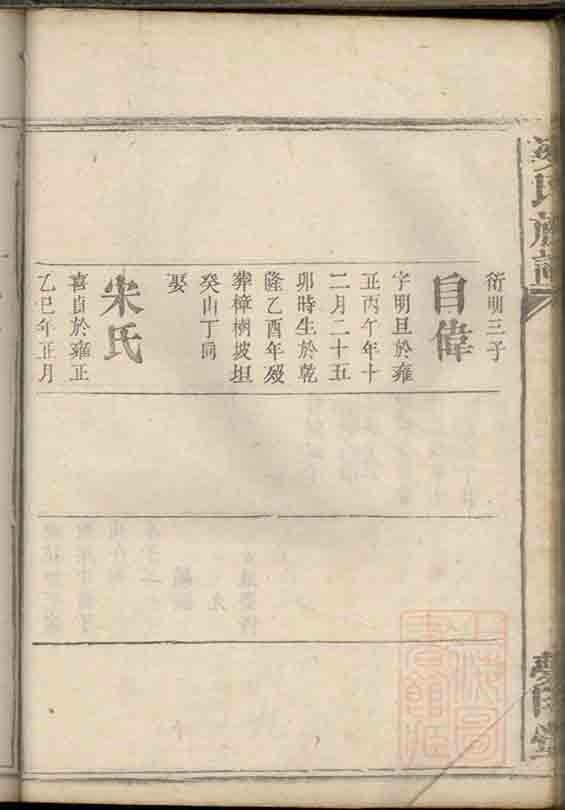 衍明三子
自偉
字明且於雍
正丙午年十
二月二十五
卯時生於乾
隆乙酉年歿
葬樟樹坡坦
癸山丁向
娶
朱氏
喜貞於雍正
乙巳年正月
氏族譜
堂
上海圖
書館藏